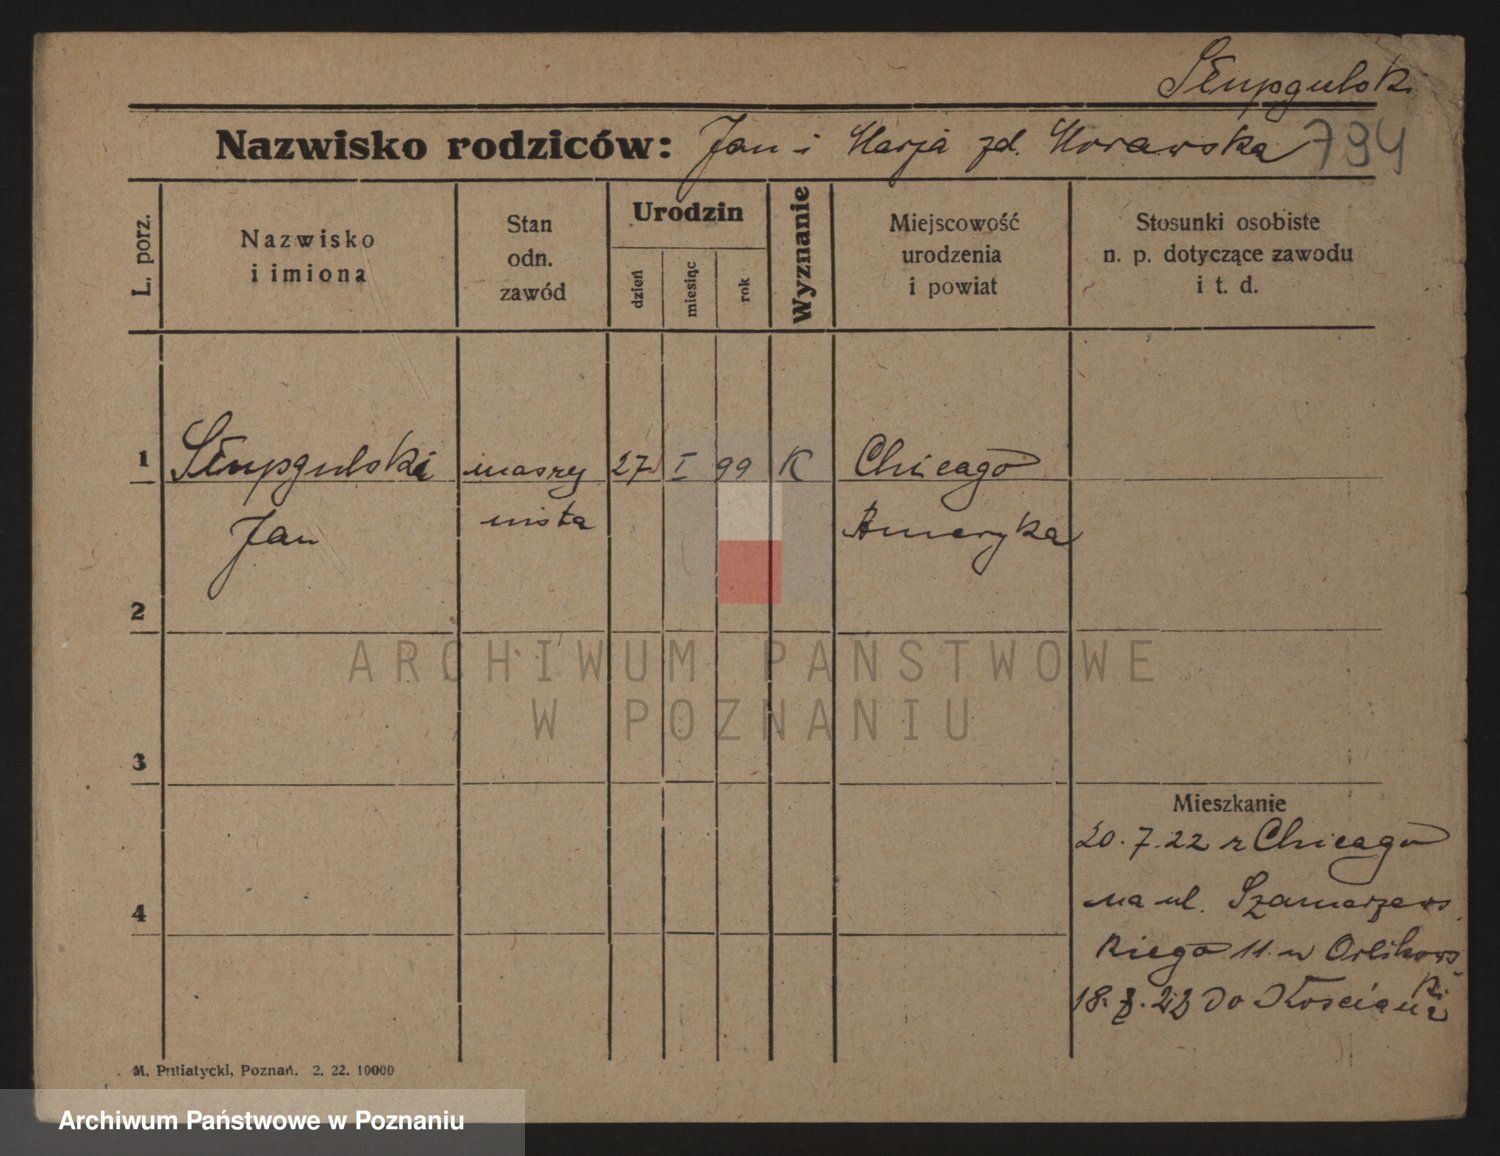 Słupgulski
Nazwisko rodziców: Jan i Marja zd. Morawska 794
L. porz.
Nazwisko
i imiona
Stan
odn.
zawód
Urodzin
dzień
miesiąc
rok
Wyznanie
Miejscowość
urodzenia
i powiat
Stosunki osobiste
n. p. dotyczące zawodu
i t. d.
1 Słupgulski maszy 27 I 99 K Chicago
Jan nista Ameryka
2
3
ARCHIWUM PAŃSTWOWE
W POZNANIU
Mieszkanie
20.7.22 z Chicago
4
na ul. Szamarzews
kiego 11. u Orlikows
ki
18. 23 do Kościana
M. Putiatycki, Poznań. 2. 22. 10000
Archiwum Państwowe w Poznaniu